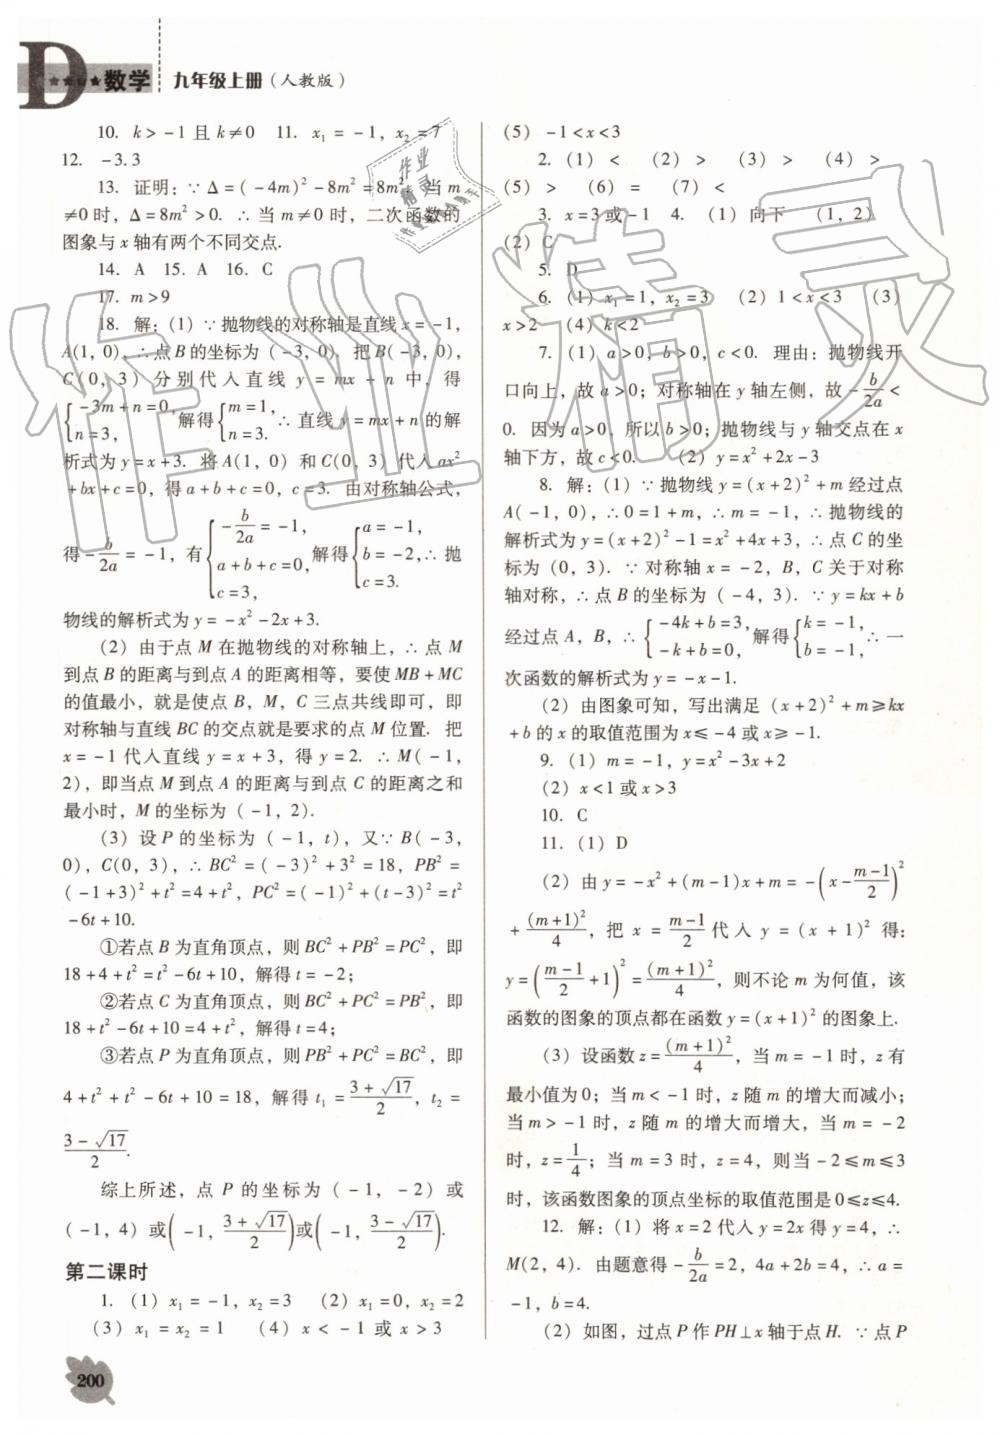 D ★★★★ 数学 九年级上册（人教版）
10. k>-1 且 k≠0  11. x₁=-1, x₂=7
12. -3.3
13. 证明：∵ Δ=(-4m)²-8m²=8m². 当 m
≠0时，Δ=8m²>0. ∴ 当 m≠0 时，二次函数的
图象与 x 轴有两个不同交点.
14. A  15. A  16. C
17. m>9
18. 解：(1) ∵ 抛物线的对称轴是直线 x=-1,
A(1, 0), ∴ 点 B 的坐标为 (-3, 0). 把 B(-3, 0),
C(0, 3) 分别代入直线 y=mx+n 中，得
{-3m+n=0, n=3, 解得{m=1, n=3. ∴ 直线 y=mx+n 的解
析式为 y=x+3. 将 A(1, 0) 和 C(0, 3) 代入 ax²
+bx+c=0, 得 a+b+c=0, c=3. 由对称轴公式，
得 -b/2a=-1, 有{-b/2a=-1, a+b+c=0, c=3, 解得{a=-1, b=-2, c=3. ∴ 抛
物线的解析式为 y=-x²-2x+3.
(2) 由于点 M 在抛物线的对称轴上，∴ 点 M
到点 B 的距离与到点 A 的距离相等，要使 MB+MC
的值最小，就是使点 B，M，C 三点共线即可，即
对称轴与直线 BC 的交点就是要求的点 M 位置. 把
x=-1 代入直线 y=x+3, 得 y=2. ∴ M(-1,
2), 即当点 M 到点 A 的距离与到点 C 的距离之和
最小时，M 的坐标为 (-1, 2).
(3) 设 P 的坐标为 (-1, t), 又∵ B(-3,
0), C(0, 3), ∴ BC²=(-3)²+3²=18, PB²=
(-1+3)²+t²=4+t², PC²=(-1)²+(t-3)²=t²
-6t+10.
①若点 B 为直角顶点，则 BC²+PB²=PC², 即
18+4+t²=t²-6t+10, 解得 t=-2;
②若点 C 为直角顶点，则 BC²+PC²=PB², 即
18+t²-6t+10=4+t², 解得 t=4;
③若点 P 为直角顶点，则 PB²+PC²=BC², 即
4+t²+t²-6t+10=18, 解得 t₁=(3+√17)/2, t₂=
(3-√17)/2.
综上所述，点 P 的坐标为 (-1, -2) 或
(-1, 4) 或(-1, (3+√17)/2)或(-1, (3-√17)/2).
第二课时
1. (1) x₁=-1, x₂=3  (2) x₁=0, x₂=2
(3) x₁=x₂=1  (4) x<-1 或 x>3
(5) -1<x<3
2. (1) <  (2) >  (3) >  (4) >
(5) >  (6) =  (7) <
3. x=3 或 -1  4. (1) 向下  (1, 2)
(2) C
5. D
6. (1) x₁=1, x₂=3  (2) 1<x<3  (3)
x>2  (4) k<2
7. (1) a>0, b>0, c<0. 理由：抛物线开
口向上，故 a>0; 对称轴在 y 轴左侧，故 -b/2a<
0. 因为 a>0, 所以 b>0; 抛物线与 y 轴交点在 x
轴下方，故 c<0.  (2) y=x²+2x-3
8. 解：(1) ∵ 抛物线 y=(x+2)²+m 经过点
A(-1, 0), ∴ 0=1+m, ∴ m=-1, ∴ 抛物线的
解析式为 y=(x+2)²-1=x²+4x+3, ∴ 点 C 的坐
标为 (0, 3). ∵ 对称轴 x=-2, B, C 关于对称
轴对称，∴ 点 B 的坐标为 (-4, 3). ∵ y=kx+b
经过点 A，B，∴ {-4k+b=3, -k+b=0, 解得{k=-1, b=-1, ∴ 一
次函数的解析式为 y=-x-1.
(2) 由图象可知，写出满足 (x+2)²+m≥kx
+b 的 x 的取值范围为 x≤-4 或 x≥-1.
9. (1) m=-1, y=x²-3x+2
(2) x<1 或 x>3
10. C
11. (1) D
(2) 由 y=-x²+(m-1)x+m=-(x-(m-1)/2)²
+(m+1)²/4, 把 x=(m-1)/2 代入 y=(x+1)² 得：
y=((m-1)/2+1)²=(m+1)²/4, 则不论 m 为何值，该
函数的图象的顶点都在函数 y=(x+1)² 的图象上.
(3) 设函数 z=(m+1)²/4, 当 m=-1 时，z 有
最小值为 0; 当 m<-1 时，z 随 m 的增大而减小；
当 m>-1 时，z 随 m 的增大而增大，当 m=-2
时，z=1/4; 当 m=3 时，z=4, 则当 -2≤m≤3
时，该函数图象的顶点坐标的取值范围是 0≤z≤4.
12. 解：(1) 将 x=2 代入 y=2x 得 y=4, ∴
M(2, 4). 由题意得 -b/2a=2, 4a+2b=4, ∴ a=
-1, b=4.
(2) 如图，过点 P 作 PH⊥x 轴于点 H. ∵ 点 P
200
作业精灵
作业
精灵